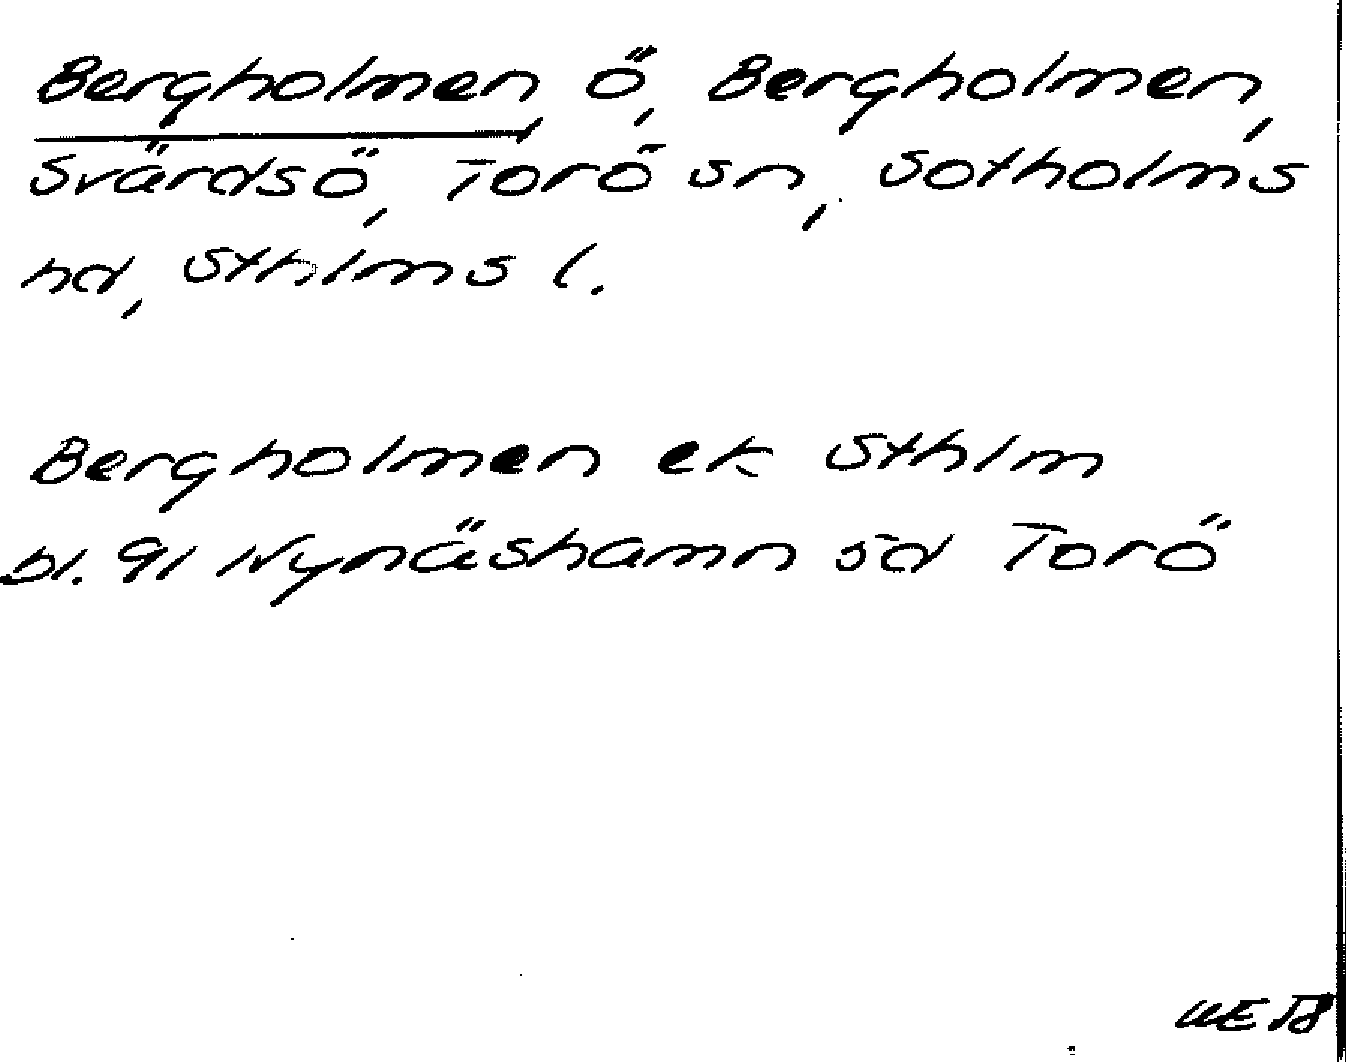 Bergholmen, ö, Bergholmen,
Svärdsö, Torö sn, Sotholms
hd, Sthlms l.
Bergholmen ek Sthlm
bl. 91 Nynäshamn sö Torö